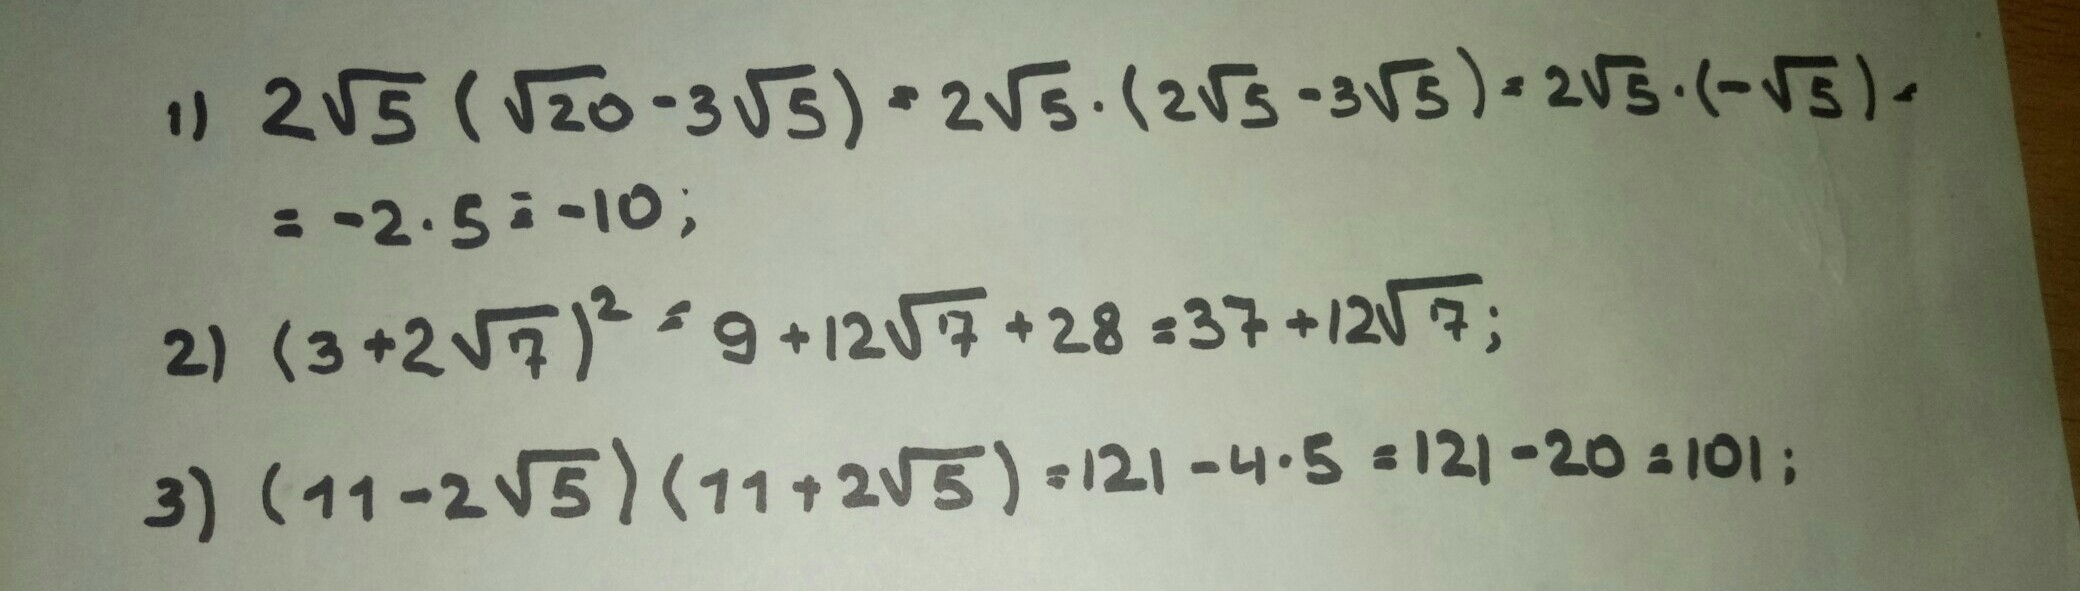 1) 2√5 (√20 - 3√5) = 2√5 · (2√5 - 3√5) = 2√5 · (-√5) =
= -2 · 5 = -10;
2) (3 + 2√7)² = 9 + 12√7 + 28 = 37 + 12√7;
3) (11 - 2√5)(11 + 2√5) = 121 - 4 · 5 = 121 - 20 = 101;